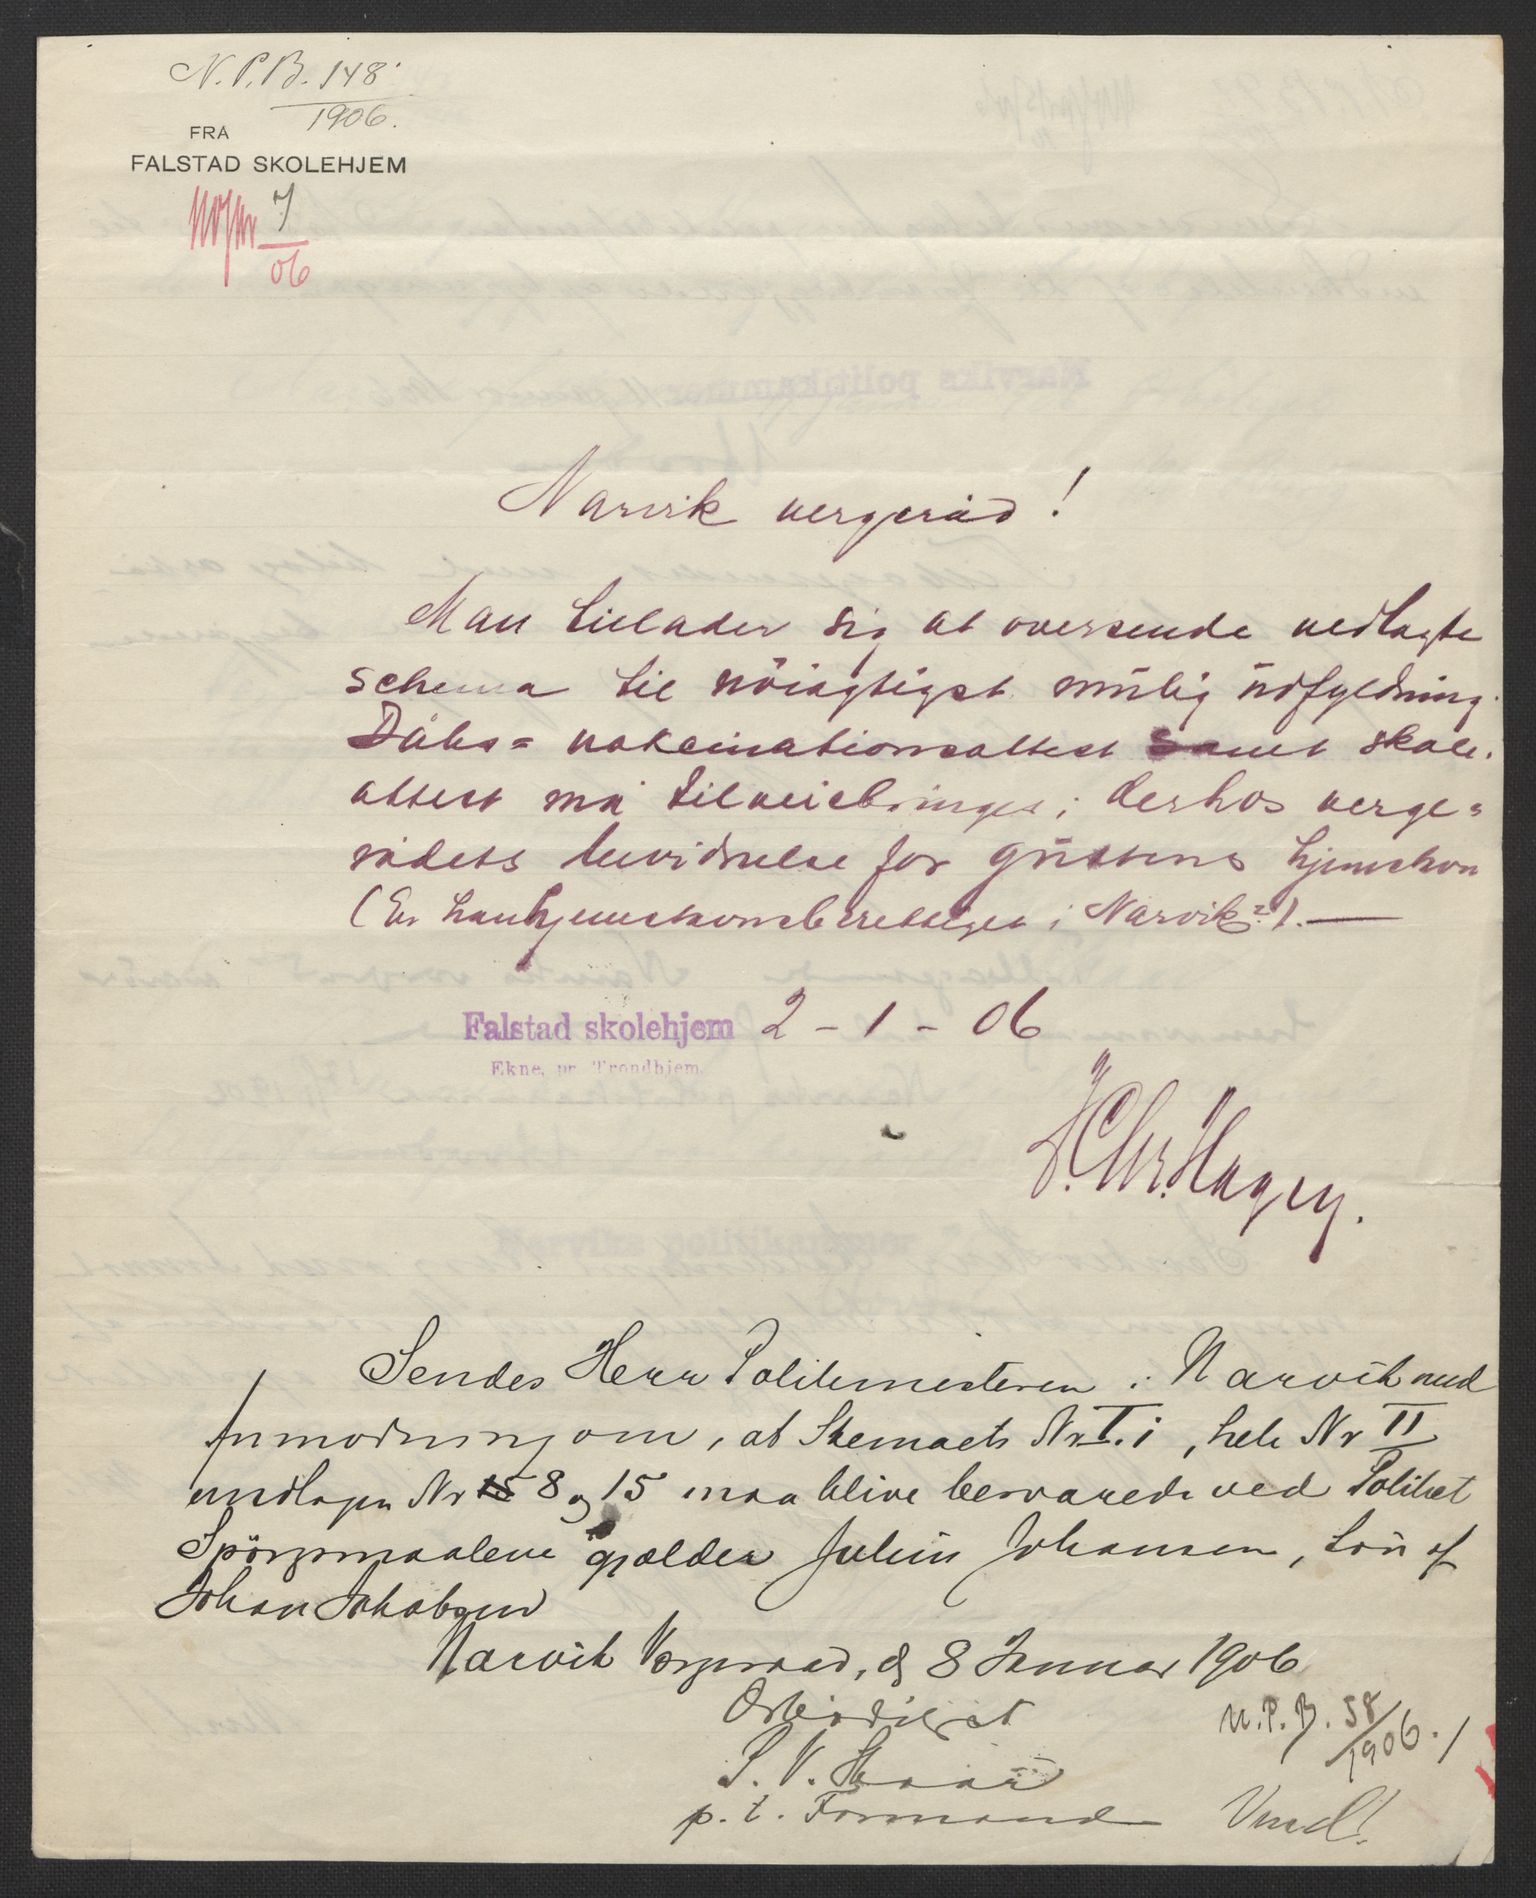 N.P.B. 148
1906.
FRA
FALSTAD SKOLEHJEM
7
06
Narvik vergeråd!
Man tillader sig at oversende vedlagte
schema til nöiagtigst mulig udfyldning.
Dåbs= vakcinationsattest samt skole-
attest må tilveiebringes; derhos verge=
rådets bevidnelse for guttens hjemstavn
(Er han hjemstavnsberettiget i Narvik?). —
Falstad skolehjem 2 - 1 - 06
Ekne, pr. Trondhjem.
Chr. Hagen.
Sendes Herr Politimesteren i Narvik med
Anmodning om, at Skemaets Nr I. i, hele Nr II
undtagen Nr 8 og 15 maa blive besvarede ved Politiet
Spörgsmaalene gjælder Julius Johansen, Sön af
Johan Jakobsen
Narvik Vergeraad, d 8 Januar 1906
Ærbödigst
p. t. Formand
N. P. B. 58/1906.
Vend!